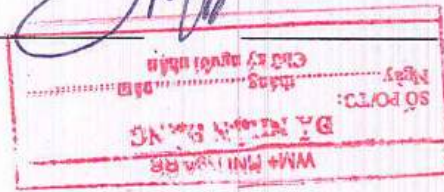 WM+
ĐÃ NHẬN HÀNG
SỐ PO/TO:
Ngày tháng năm
Chữ ký người nhận